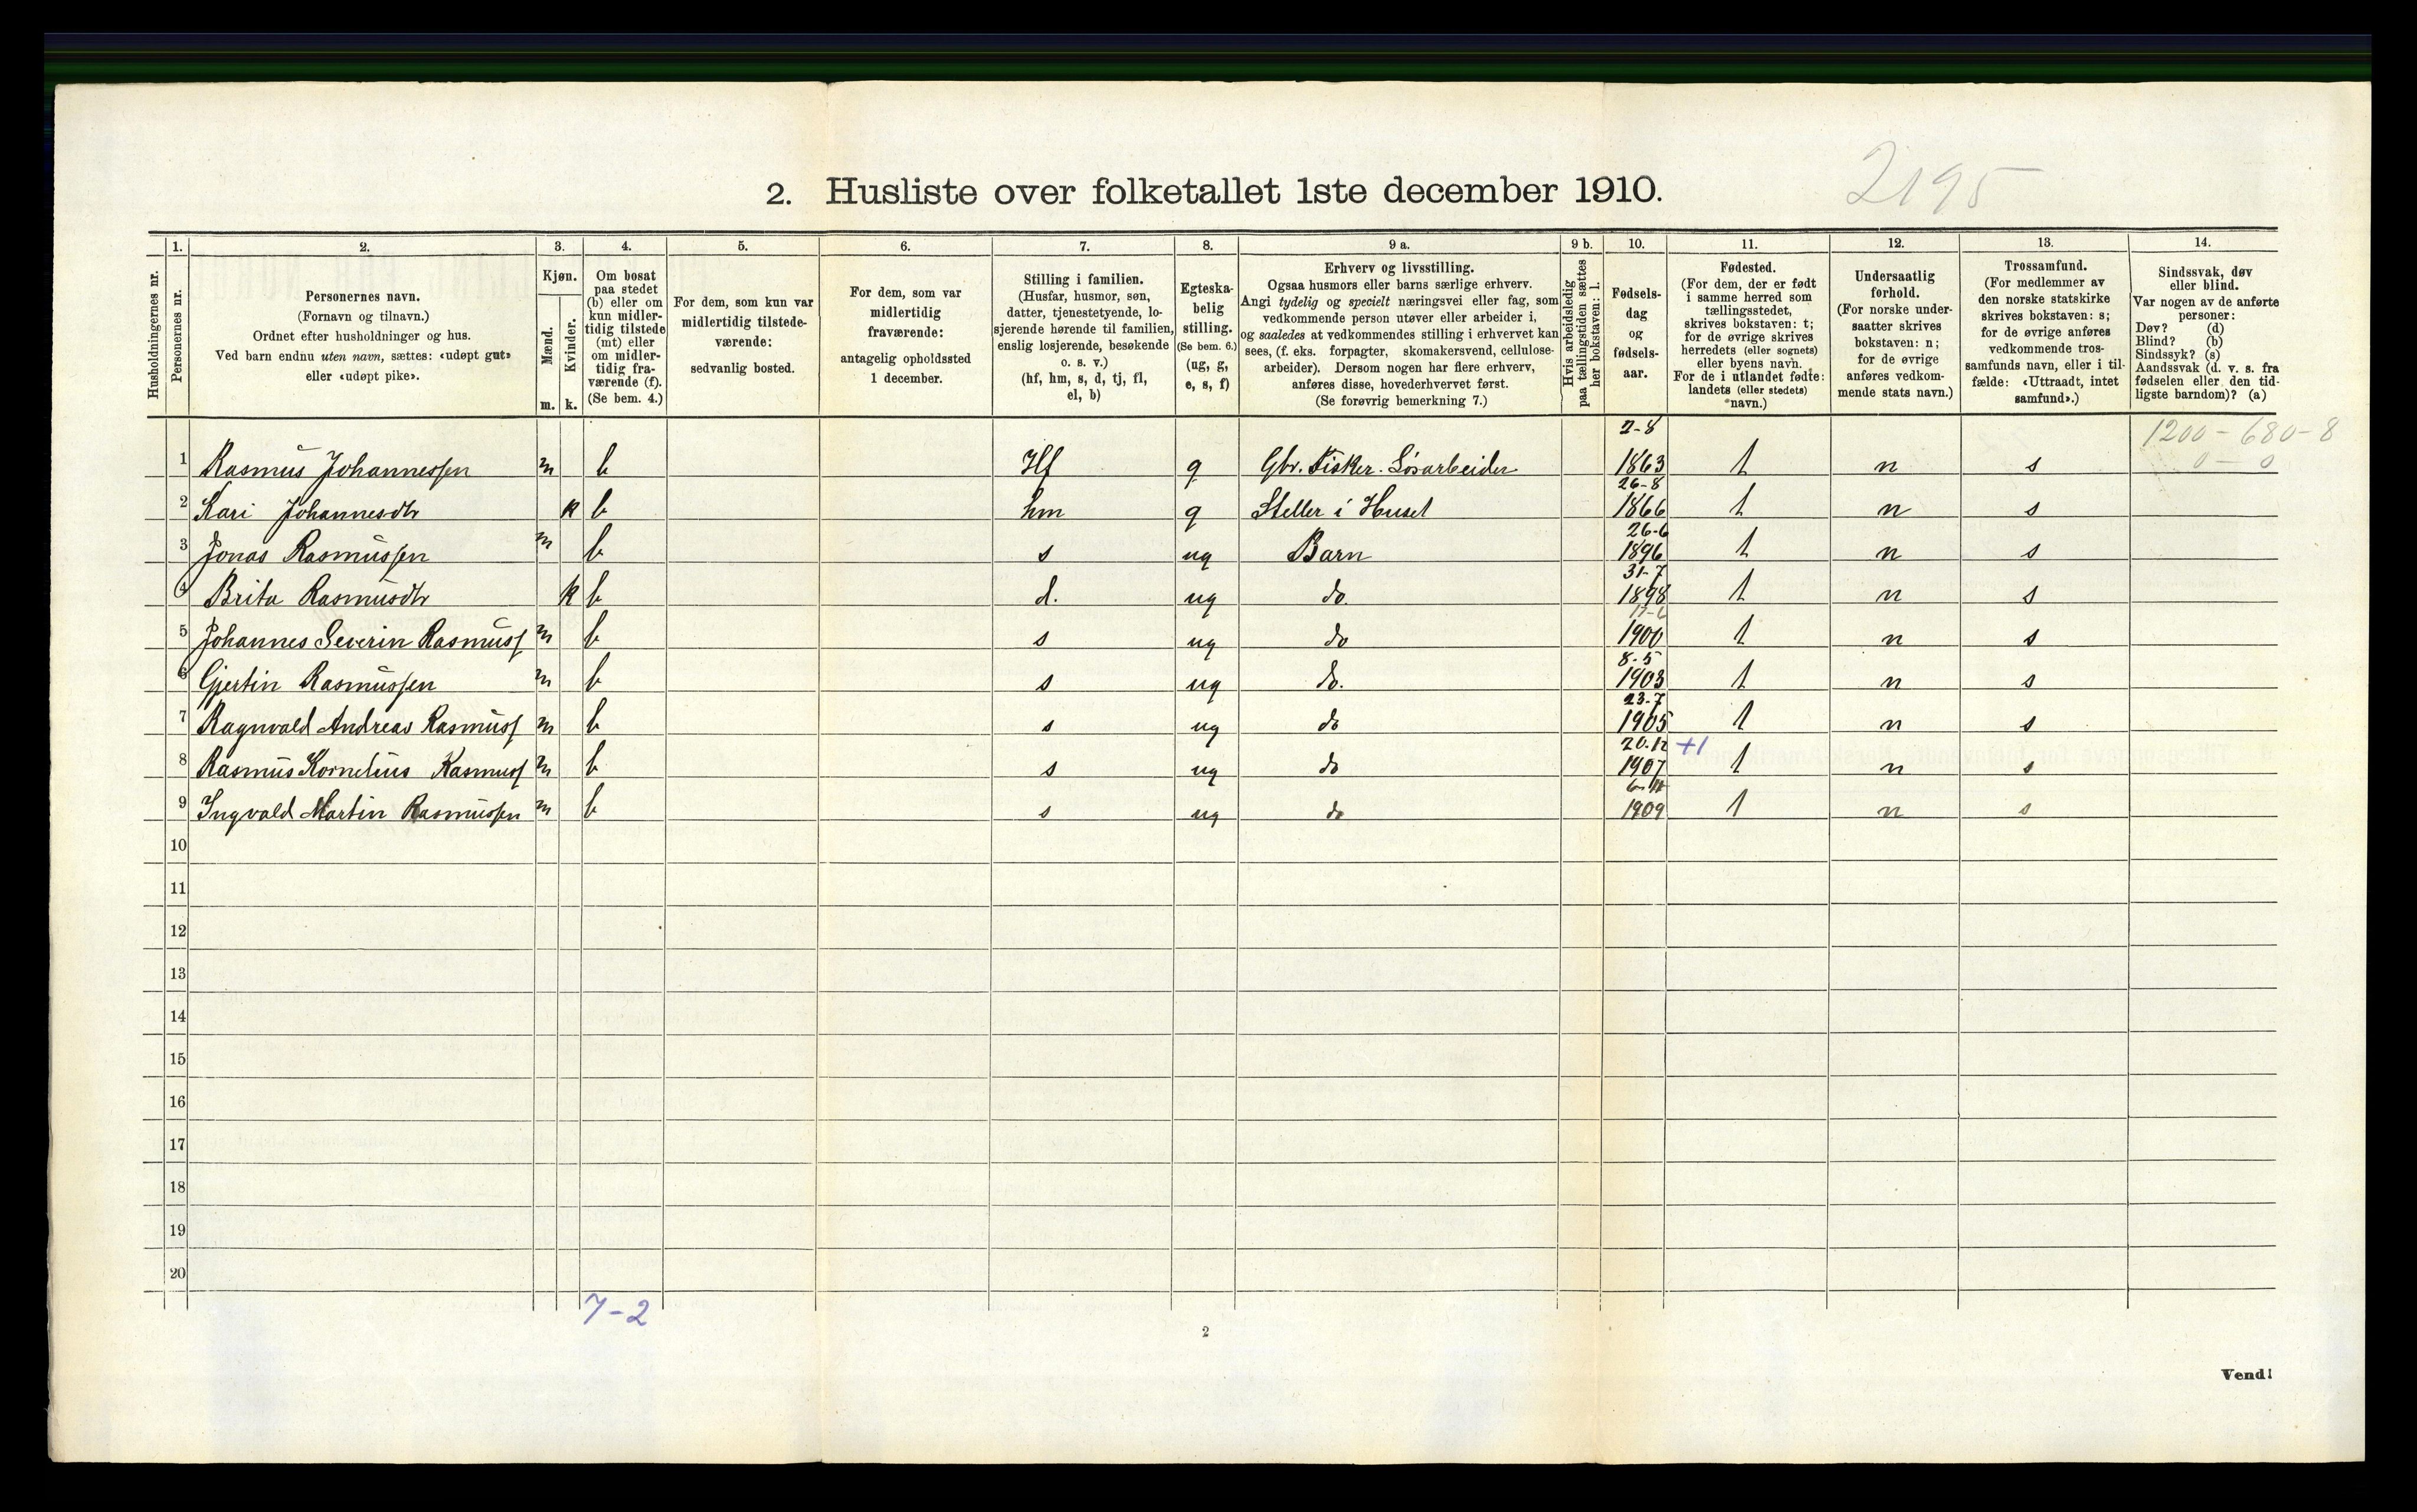 2195
2. Husliste over folketallet 1ste december 1910.
1. 2. 3. 4. 5. 6. 7. 8. 9 a. 9 b. 10. 11. 12. 13. 14.
Husholdningernes nr.
Personernes nr.
Personernes navn.
(Fornavn og tilnavn.)
Ordnet efter husholdninger og hus.
Ved barn endnu uten navn, sættes: «udøpt gut»
eller «udøpt pike».
Kjøn.
Mænd.
Kvinder.
m. k.
Om bosat
paa stedet
(b) eller om
kun midler-
tidig tilstede
(mt) eller
om midler-
tidig fra-
værende (f).
(Se bem. 4.)
For dem, som kun var
midlertidig tilstede-
værende:
sedvanlig bosted.
For dem, som var
midlertidig
fraværende:
antagelig opholdssted
1 december.
Stilling i familien.
(Husfar, husmor, søn,
datter, tjenestetyende, lo-
sjerende hørende til familien,
enslig losjerende, besøkende
o. s. v.)
(hf, hm, s, d, tj, fl,
el, b)
Egteska-
belig
stilling.
(Se bem. 6.)
(ug, g,
e, s, f)
Erhverv og livsstilling.
Ogsaa husmors eller barns særlige erhverv.
Angi tydelig og specielt næringsvei eller fag, som
vedkommende person utøver eller arbeider i,
og saaledes at vedkommendes stilling i erhvervet kan
sees, (f. eks. forpagter, skomakersvend, cellulose-
arbeider). Dersom nogen har flere erhverv,
anføres disse, hovederhvervet først.
(Se forøvrig bemerkning 7.)
Hvis arbeidsledig
paa tællingstiden sættes
her bokstaven: l.
Fødsels-
dag
og
fødsels-
aar.
Fødested.
(For dem, der er født
i samme herred som
tællingsstedet,
skrives bokstaven: t;
for de øvrige skrives
herredets (eller sognets)
eller byens navn.
For de i utlandet fødte:
landets (eller stedets)
navn.)
Undersaatlig
forhold.
(For norske under-
saatter skrives
bokstaven: n;
for de øvrige
anføres vedkom-
mende stats navn.)
Trossamfund.
(For medlemmer av
den norske statskirke
skrives bokstaven: s;
for de øvrige anføres
vedkommende tros-
samfunds navn, eller i til-
fælde: «Uttraadt, intet
samfund».)
Sindssvak, døv
eller blind.
Var nogen av de anførte
personer:
Døv? (d)
Blind? (b)
Sindssyk? (s)
Aandssvak (d. v. s. fra
fødselen eller den tid-
ligste barndom)? (a)
1200 - 680 - 8
0 - 0
2-8
1 Rasmus Johannessen m b Hf g Gbr. Fisker. Løsarbeider 1863 t n s
26-8
2 Kari Johannesdtr k b hm g Steller i Huset 1866 t n s
26-6
3 Jonas Rasmussen m b s ug Barn 1896 t n s
31-7
4 Brita Rasmusdtr k b d. ug do. 1898 t n s
17-6
5 Johannes Severin Rasmuss m b s ug do 1900 t n s
8-5
6 Gjertin Rasmussen m b s ug do. 1903 t n s
23-7
7 Ragnvald Andreas Rasmuss m b s ug do 1905 t n s
20-12 +1
8 Rasmus Kornelius Rasmuss m b s ug do 1907 t n s
9 Ingvald Martin Rasmussen m b s ug do 1909 t n s
10
11
12
13
14
15
16
17
18
19
20
7-2
2
Vend!